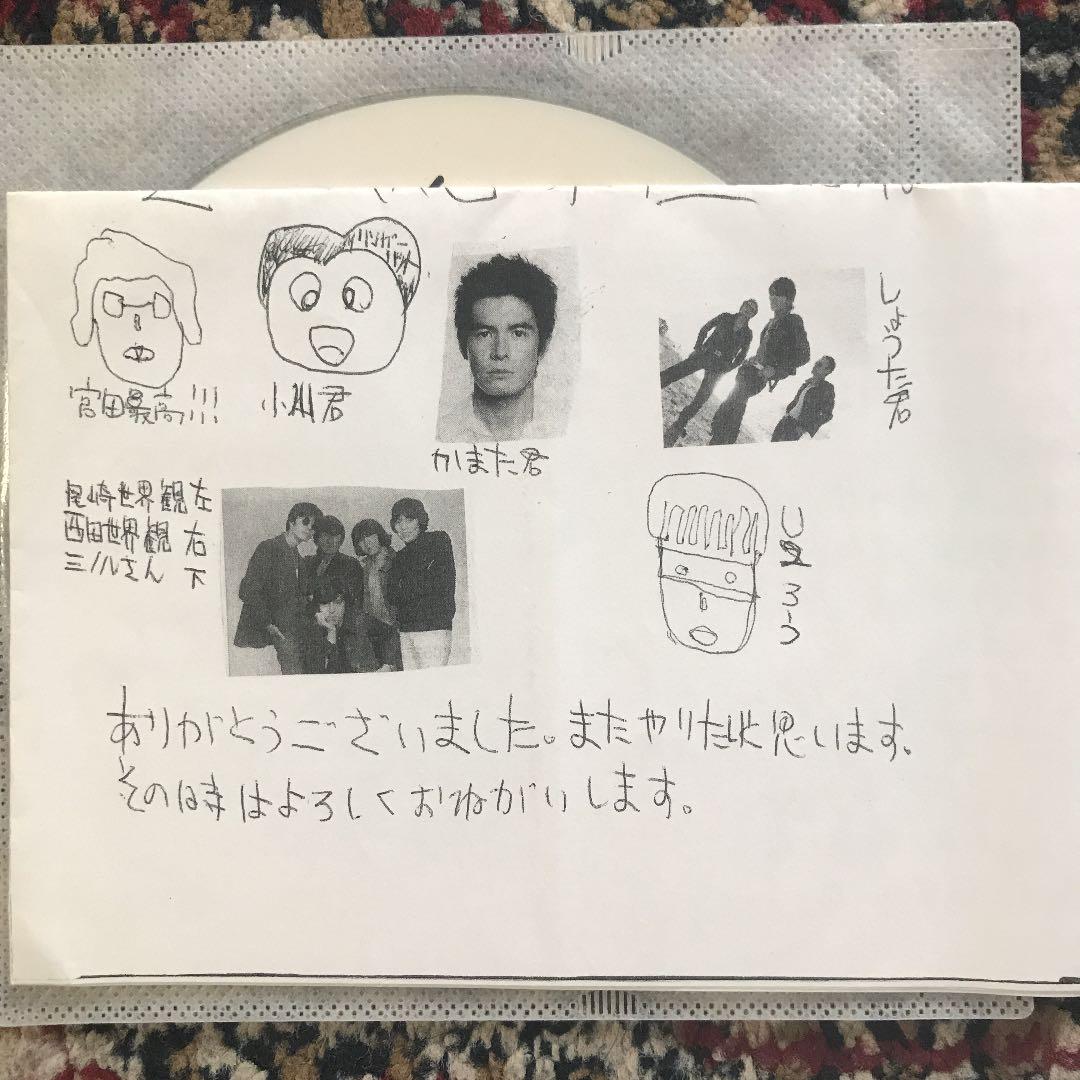 リンガーハット
宮田最高!!!
小川君
かまた君
しょうた君
尾崎世界観 左
西田世界観 右
三ノルさん 下
ありがとうございました。またやりたいと思います。
その時はよろしくおねがいします。